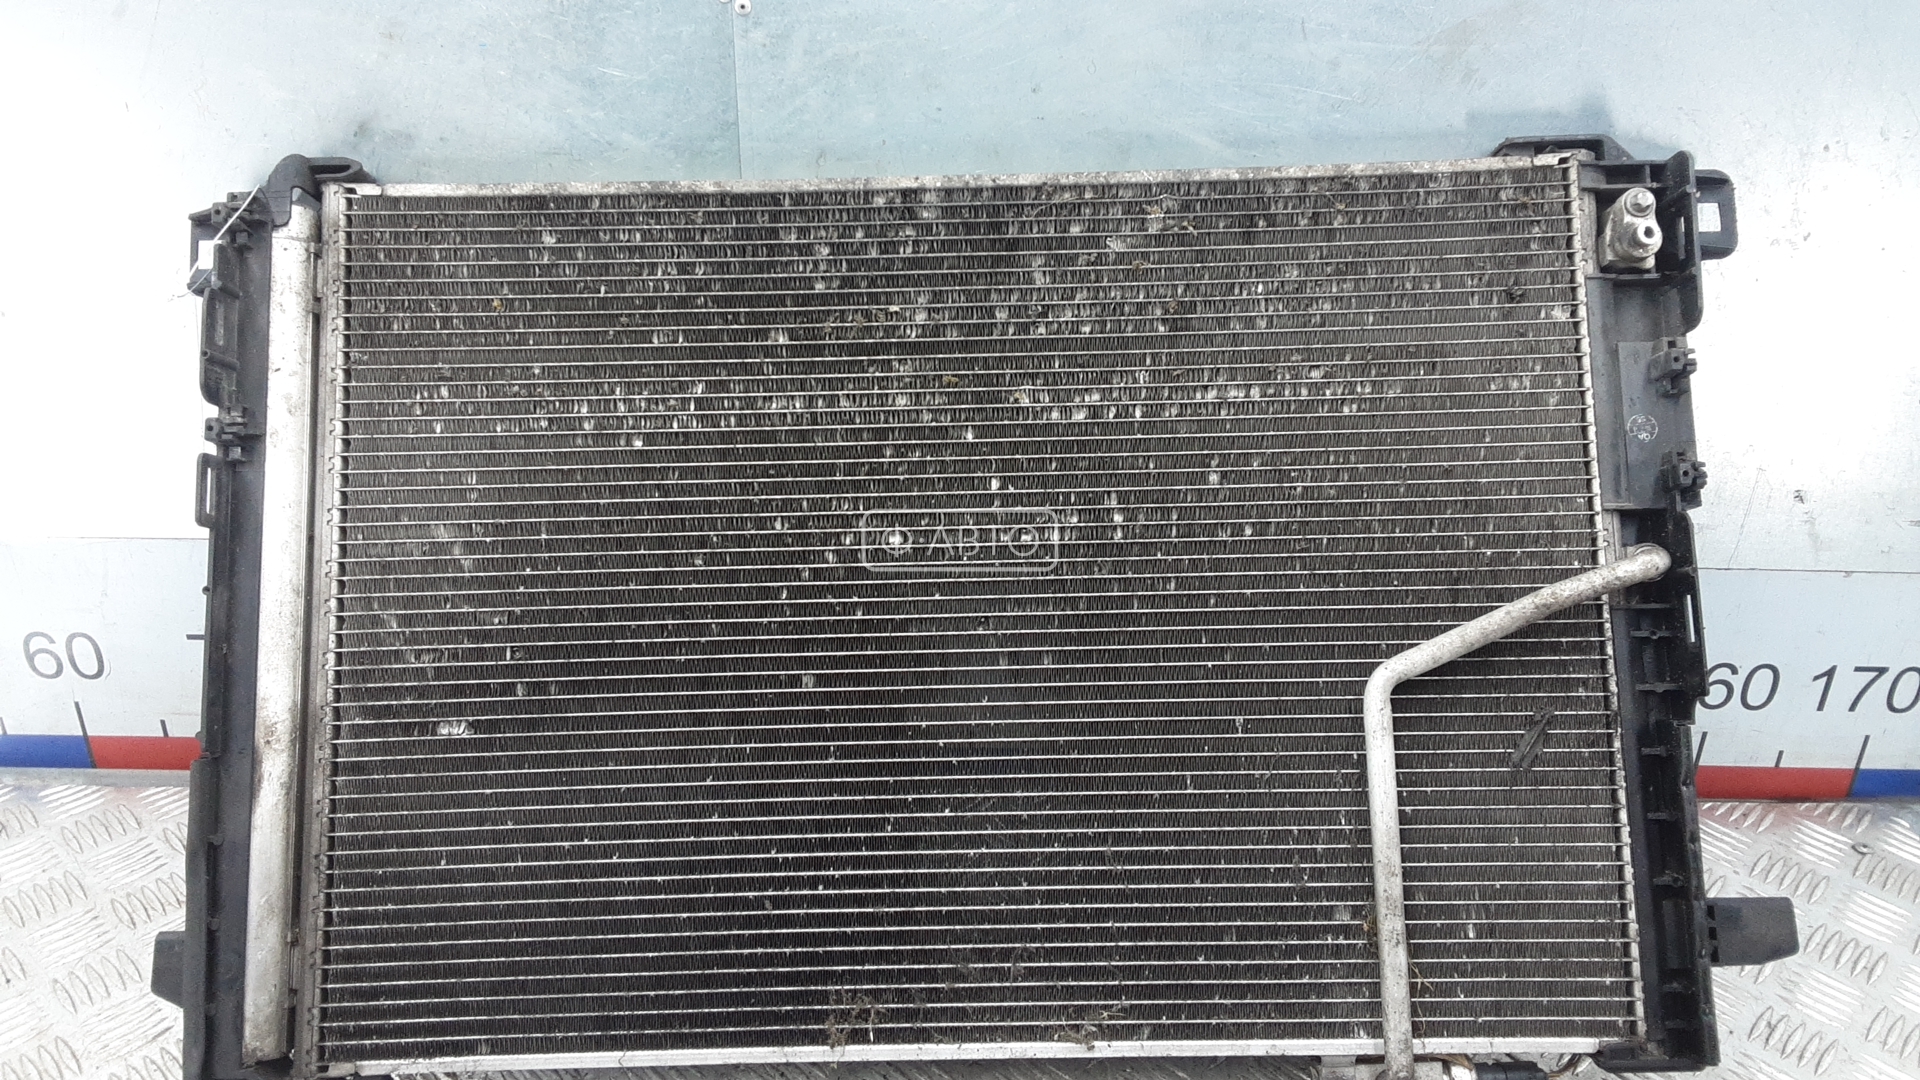 АВТО
60
60 170